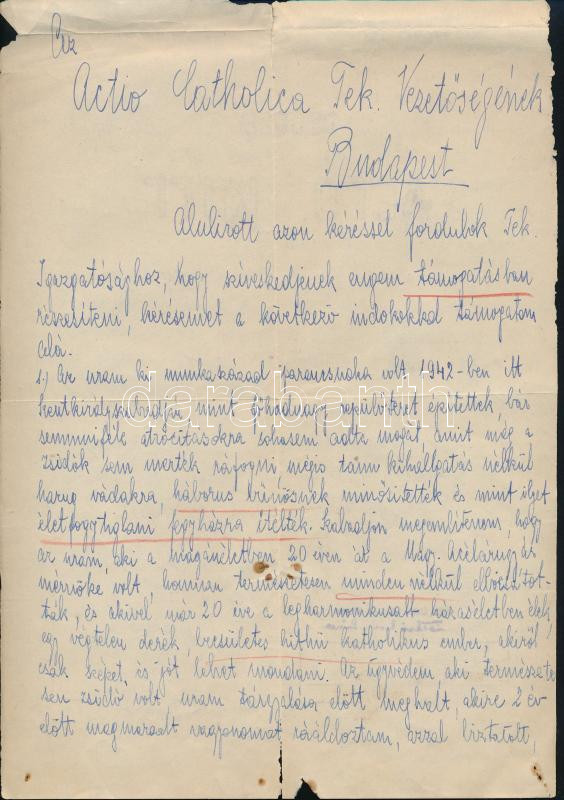 Az
Actio Catholica Tek. Vezetőségének
Budapest
Alulirott azon kéréssel fordulok Tek.
Igazgatósághoz, hogy sziveskedjenek engem támogatásban
részesiteni, kérésemet a következő indokokkal támogatom
alá.
1.) Az uram ki munkaszázad parancsnoka volt 1942-ben itt
Szentkirályszabadján mint főhadnagy repülőteret épitettek, bár
semmiféle atrocitásokra sohasem adta magát, amit még a
zsidók sem mertek ráfogni mégis tanu kihallgatás nélkül
hazug vádakra, háborus bünösnek minősitették és mint ilyet
életfogytiglani fegyházra itélték. Szabadjon megemlitenem, hogy
az uram, aki a magánéletben 20 éven át a Mag. Acélárugyár
mérnöke volt, honnan természetesen minden nélkül elbocsátot-
ták, és akivel már 20 éve a legharmonikusabb házaséletben élek,
egy végtelen derék, becsületes hithü katholikus ember, akiről
csak szépet, és jót lehet mondani. Az ügyvédem aki természete-
sen zsidó volt, uram tárgyalása előtt meghalt, akire 2 év
előtt megmaradt vagyonomat rááldoztam, azzal biztatott,
darabanth